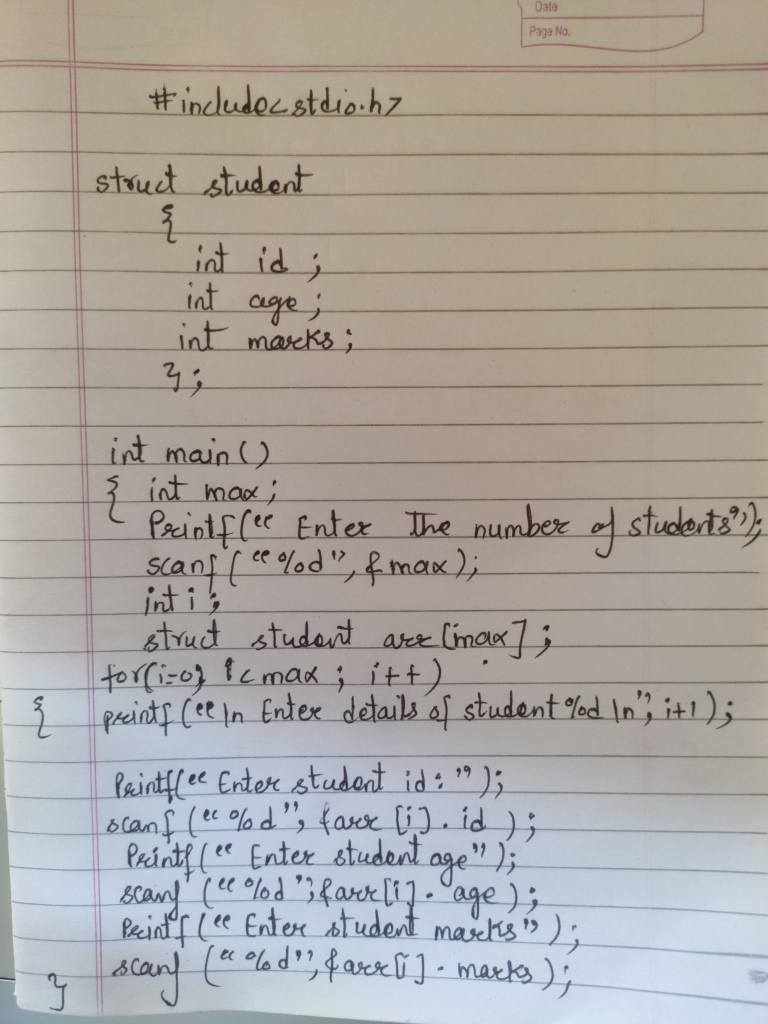 Date
Page No.
#include<stdio.h>
struct student
{
int id ;
int age ;
int marks ;
};
int main()
{ int max ;
Printf(“ Enter The number of students”);
scanf (“%d”, &max);
int i ;
struct student arr[max] ;
for(i=0; i<max ; i++)
{ printf (“\n Enter details of student %d \n”, i+1) ;
Printf(“ Enter student id : ”);
scanf (“%d”, &arr [i]. id ) ;
Printf(“ Enter student age”);
scanf (“%d”, &arr[i]. age) ;
Printf(“ Enter student marks” ) ;
scanf (“%d”, &arr[i] . marks) ;
}